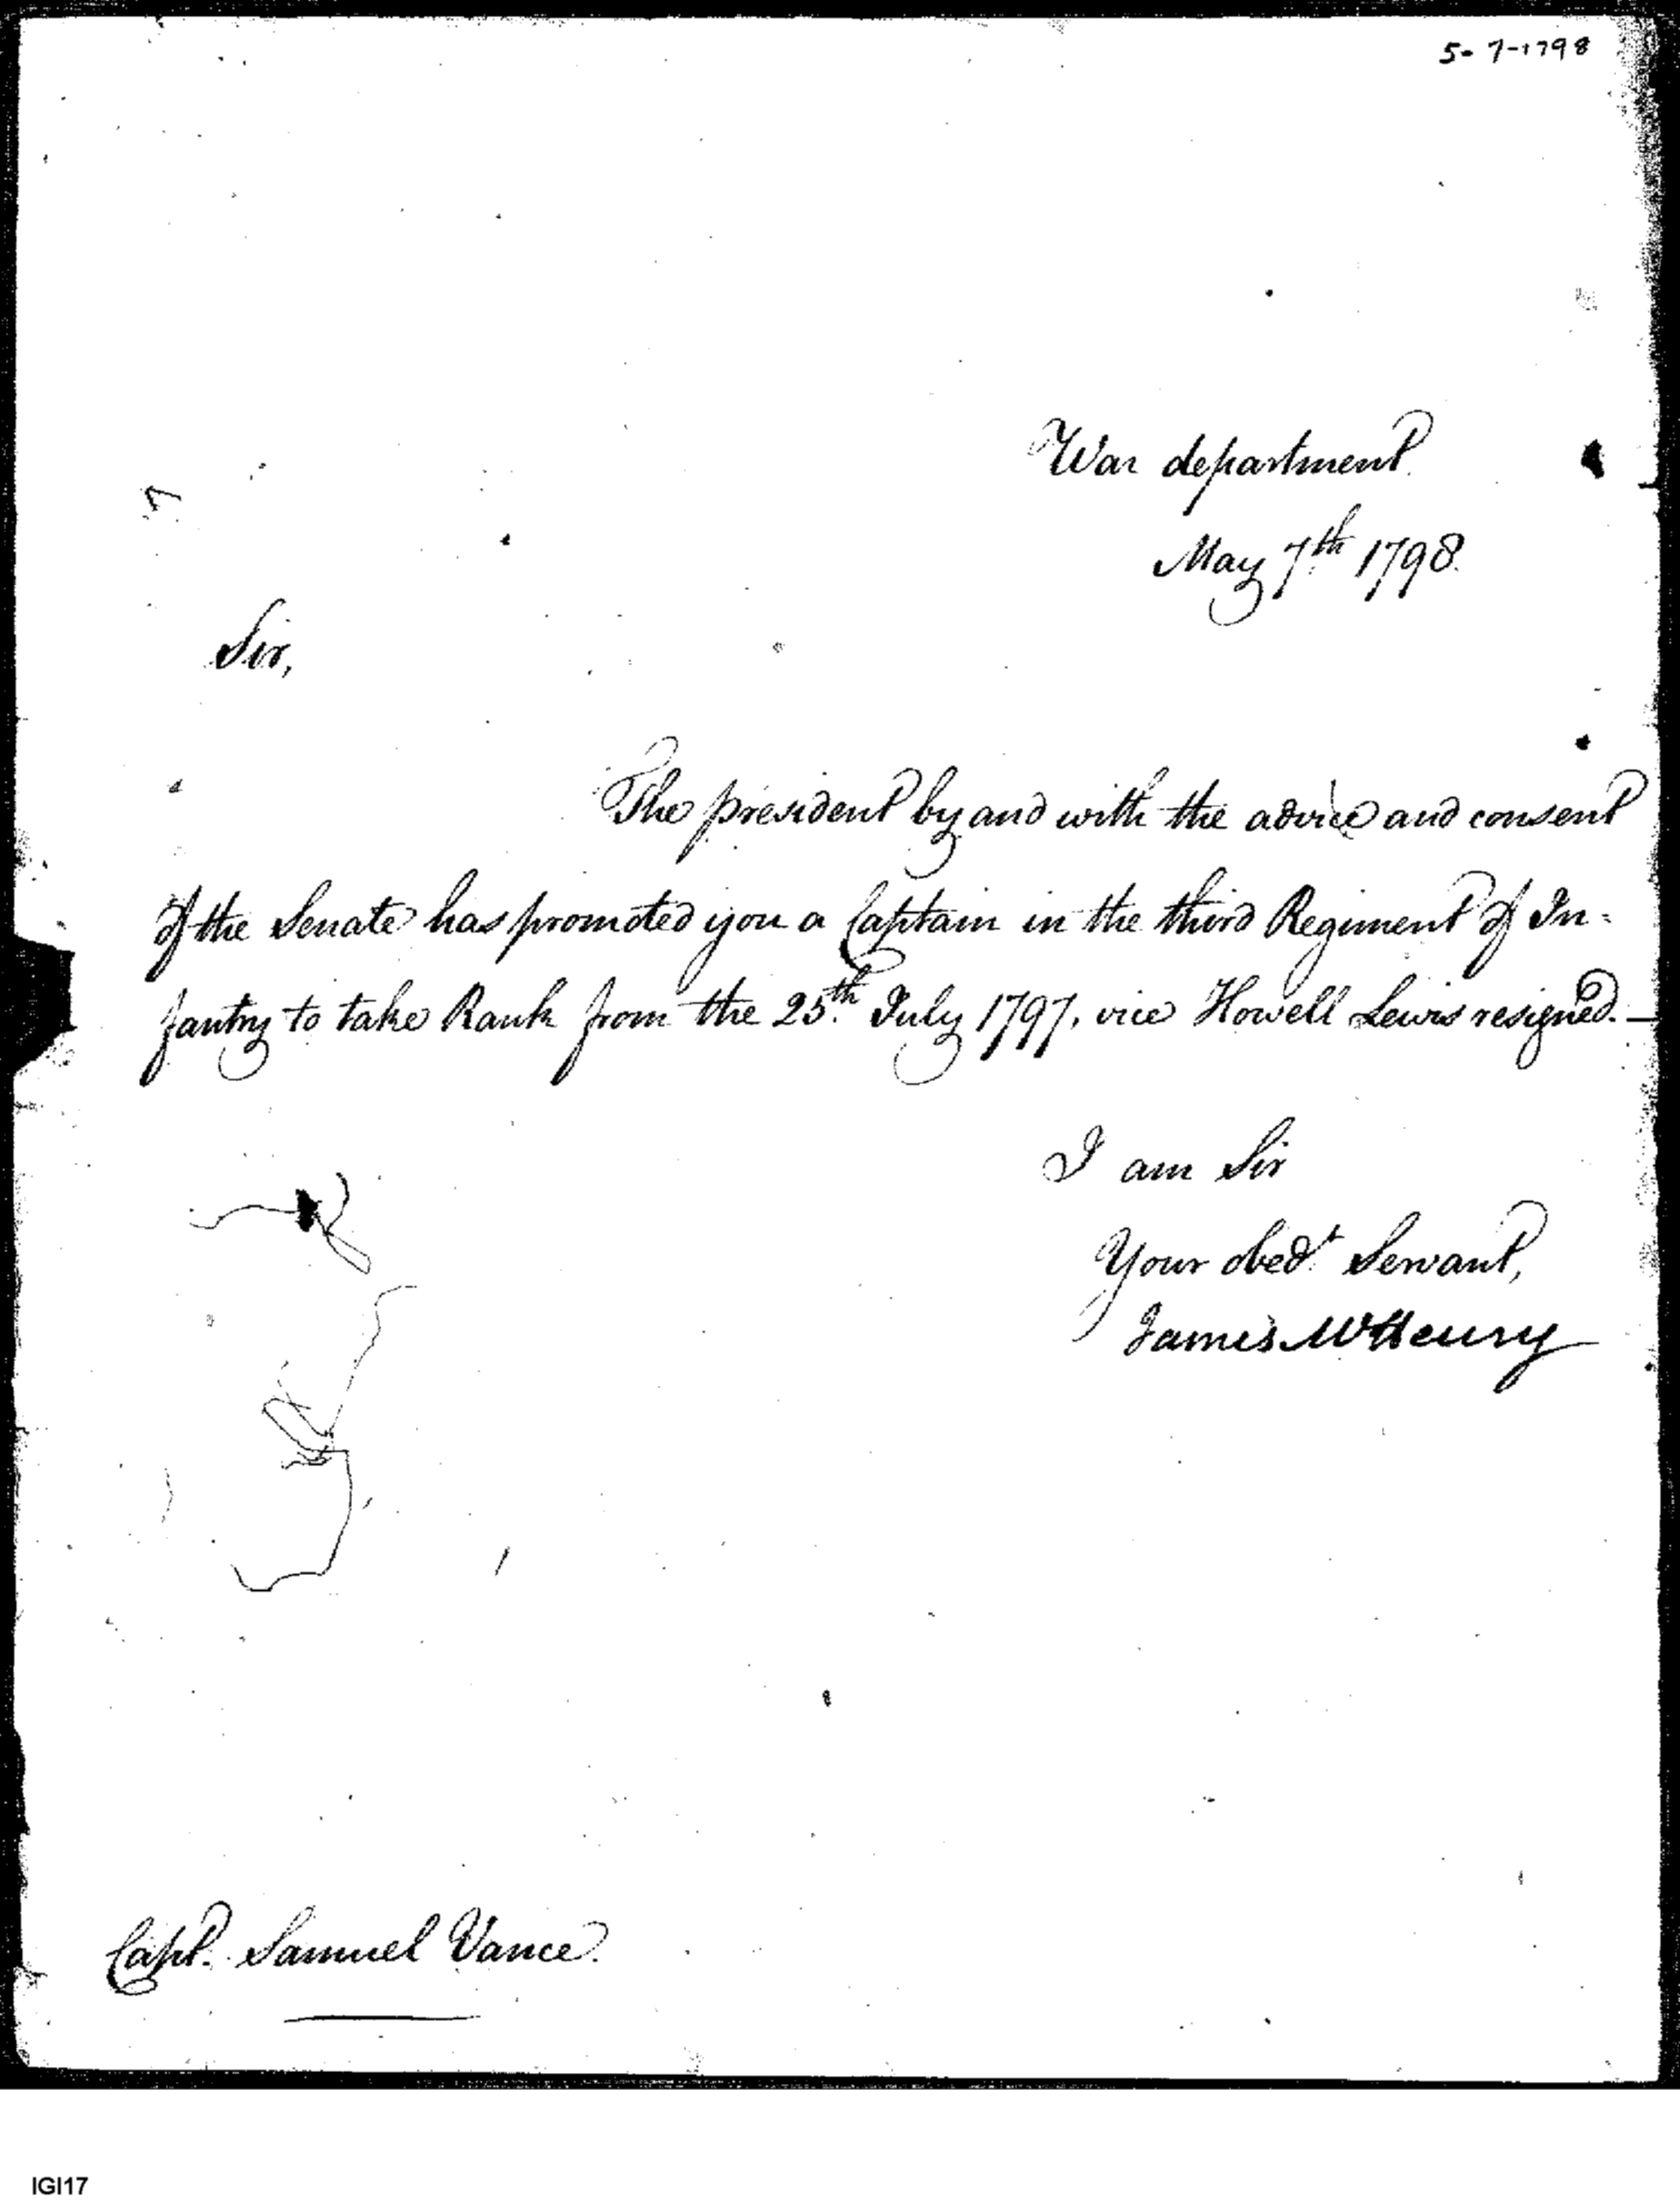 5-7-1798
War department
May 7th 1798.
Sir,
The president by and with the advice and consent
of the Senate has promoted you a Captain in the third Regiment of In-
fantry to take Rank from the 25th July 1797, vice Howell Lewis resigned.—
I am Sir
Your obedt Servant,
James McHenry
Capt. Samuel Vance.
IGI17